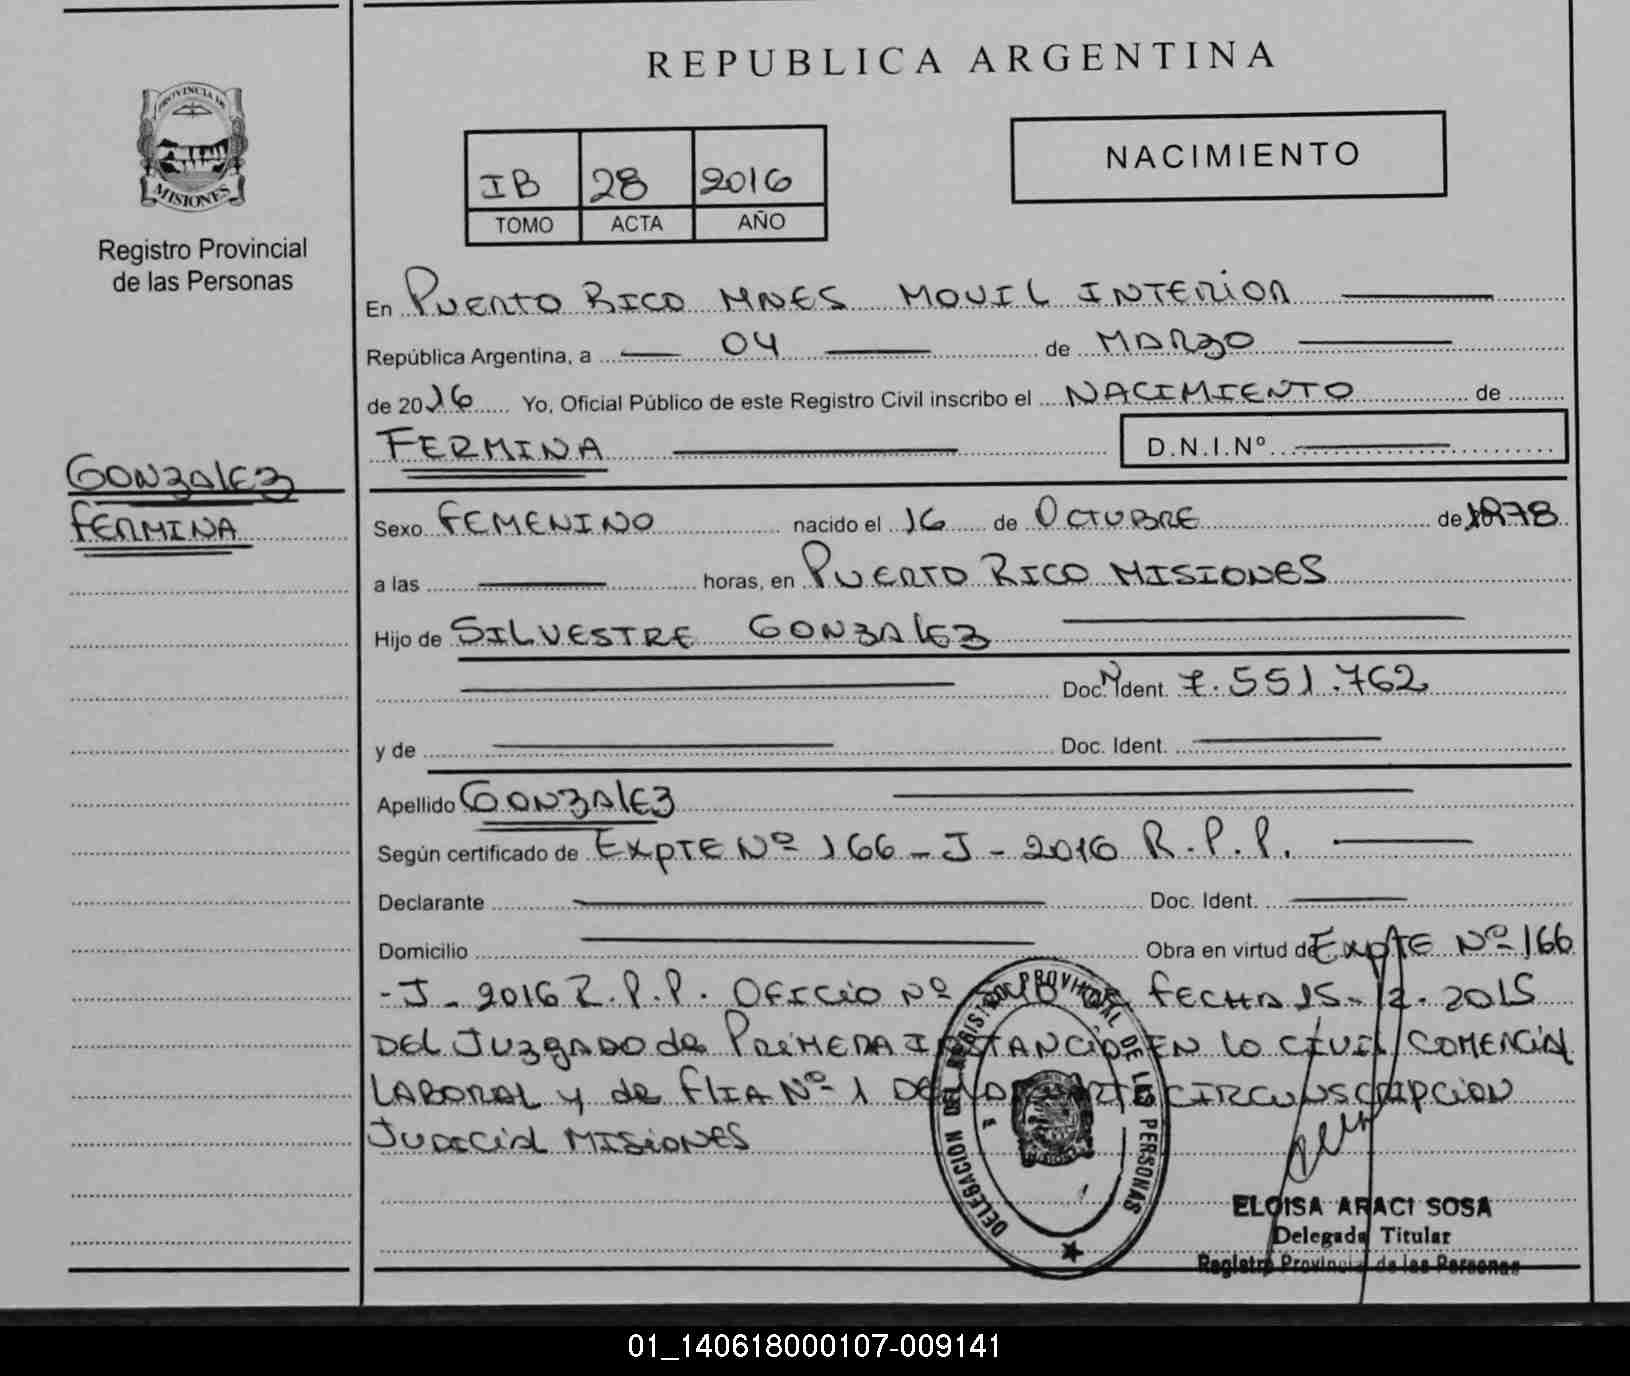 REPUBLICA ARGENTINA
PROVINCIA DE
MISIONES
Registro Provincial
de las Personas
NACIMIENTO
IB 28 2016
TOMO ACTA AÑO
En PUERTO RICO MNES MOVIL INTERIOR
República Argentina, a 04 de MARZO
de 2016 Yo, Oficial Público de este Registro Civil inscribo el NACIMIENTO de
FERMINA D.N.I.Nº
GONZALEZ
FERMINA
Sexo FEMENINO nacido el 16 de OCTUBRE de 1978
a las horas, en PUERTO RICO MISIONES
Hijo de SILVESTRE GONZALEZ
Doc. Ident. 7.551.762
y de Doc. Ident.
Apellido GONZALEZ
Según certificado de EXPTE Nº 166-J-2016 R.P.P.
Declarante Doc. Ident.
Domicilio Obra en virtud de EXPTE Nº 166
-J-2016 R.P.P. OFICIO Nº FECHA 15-12-2015
DEL JUZGADO de PRIMERA INSTANCIA EN LO CIVIL COMERCIAL
LABORAL y de FLIA Nº 1 CIRCUNSCRIPCION
JUDICIAL MISIONES
DELEGACION DEL REGISTRO PROVINCIAL DE LAS PERSONAS
ELOISA ARACI SOSA
Delegada Titular
Registro Provincial de las Personas
01_140618000107-009141